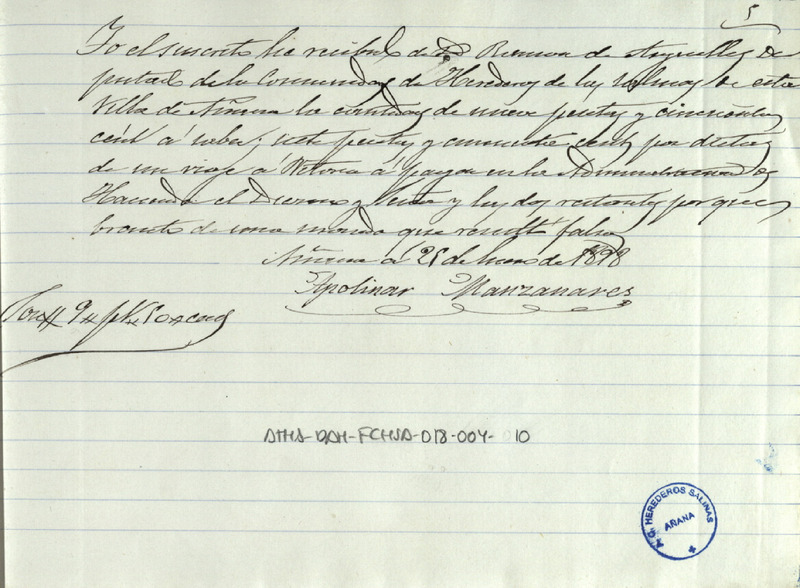 5
Yo el suscrito he recibido de D Ramon de Arguelles Di
putado de la Comunidad de Herederos de las Salinas de esta
Villa de Añana la cantidad de nueve pesetas y cincuenta
cént á saber; siete pesetas y cincuenta cent por dietas
de un viaje á Vitoria á pagar en la Administracion de
Hacienda el Diezmo y y las dos restantes por que
branto de una moneda que resultó falsa
Añana á 25 de Enero de 1898
Apolinar Manzanares
Son# 9# pts 50# cent
ATHA-DAH-FCHSA-018-004-010
A.G. HEREDEROS SALINAS
AÑANA